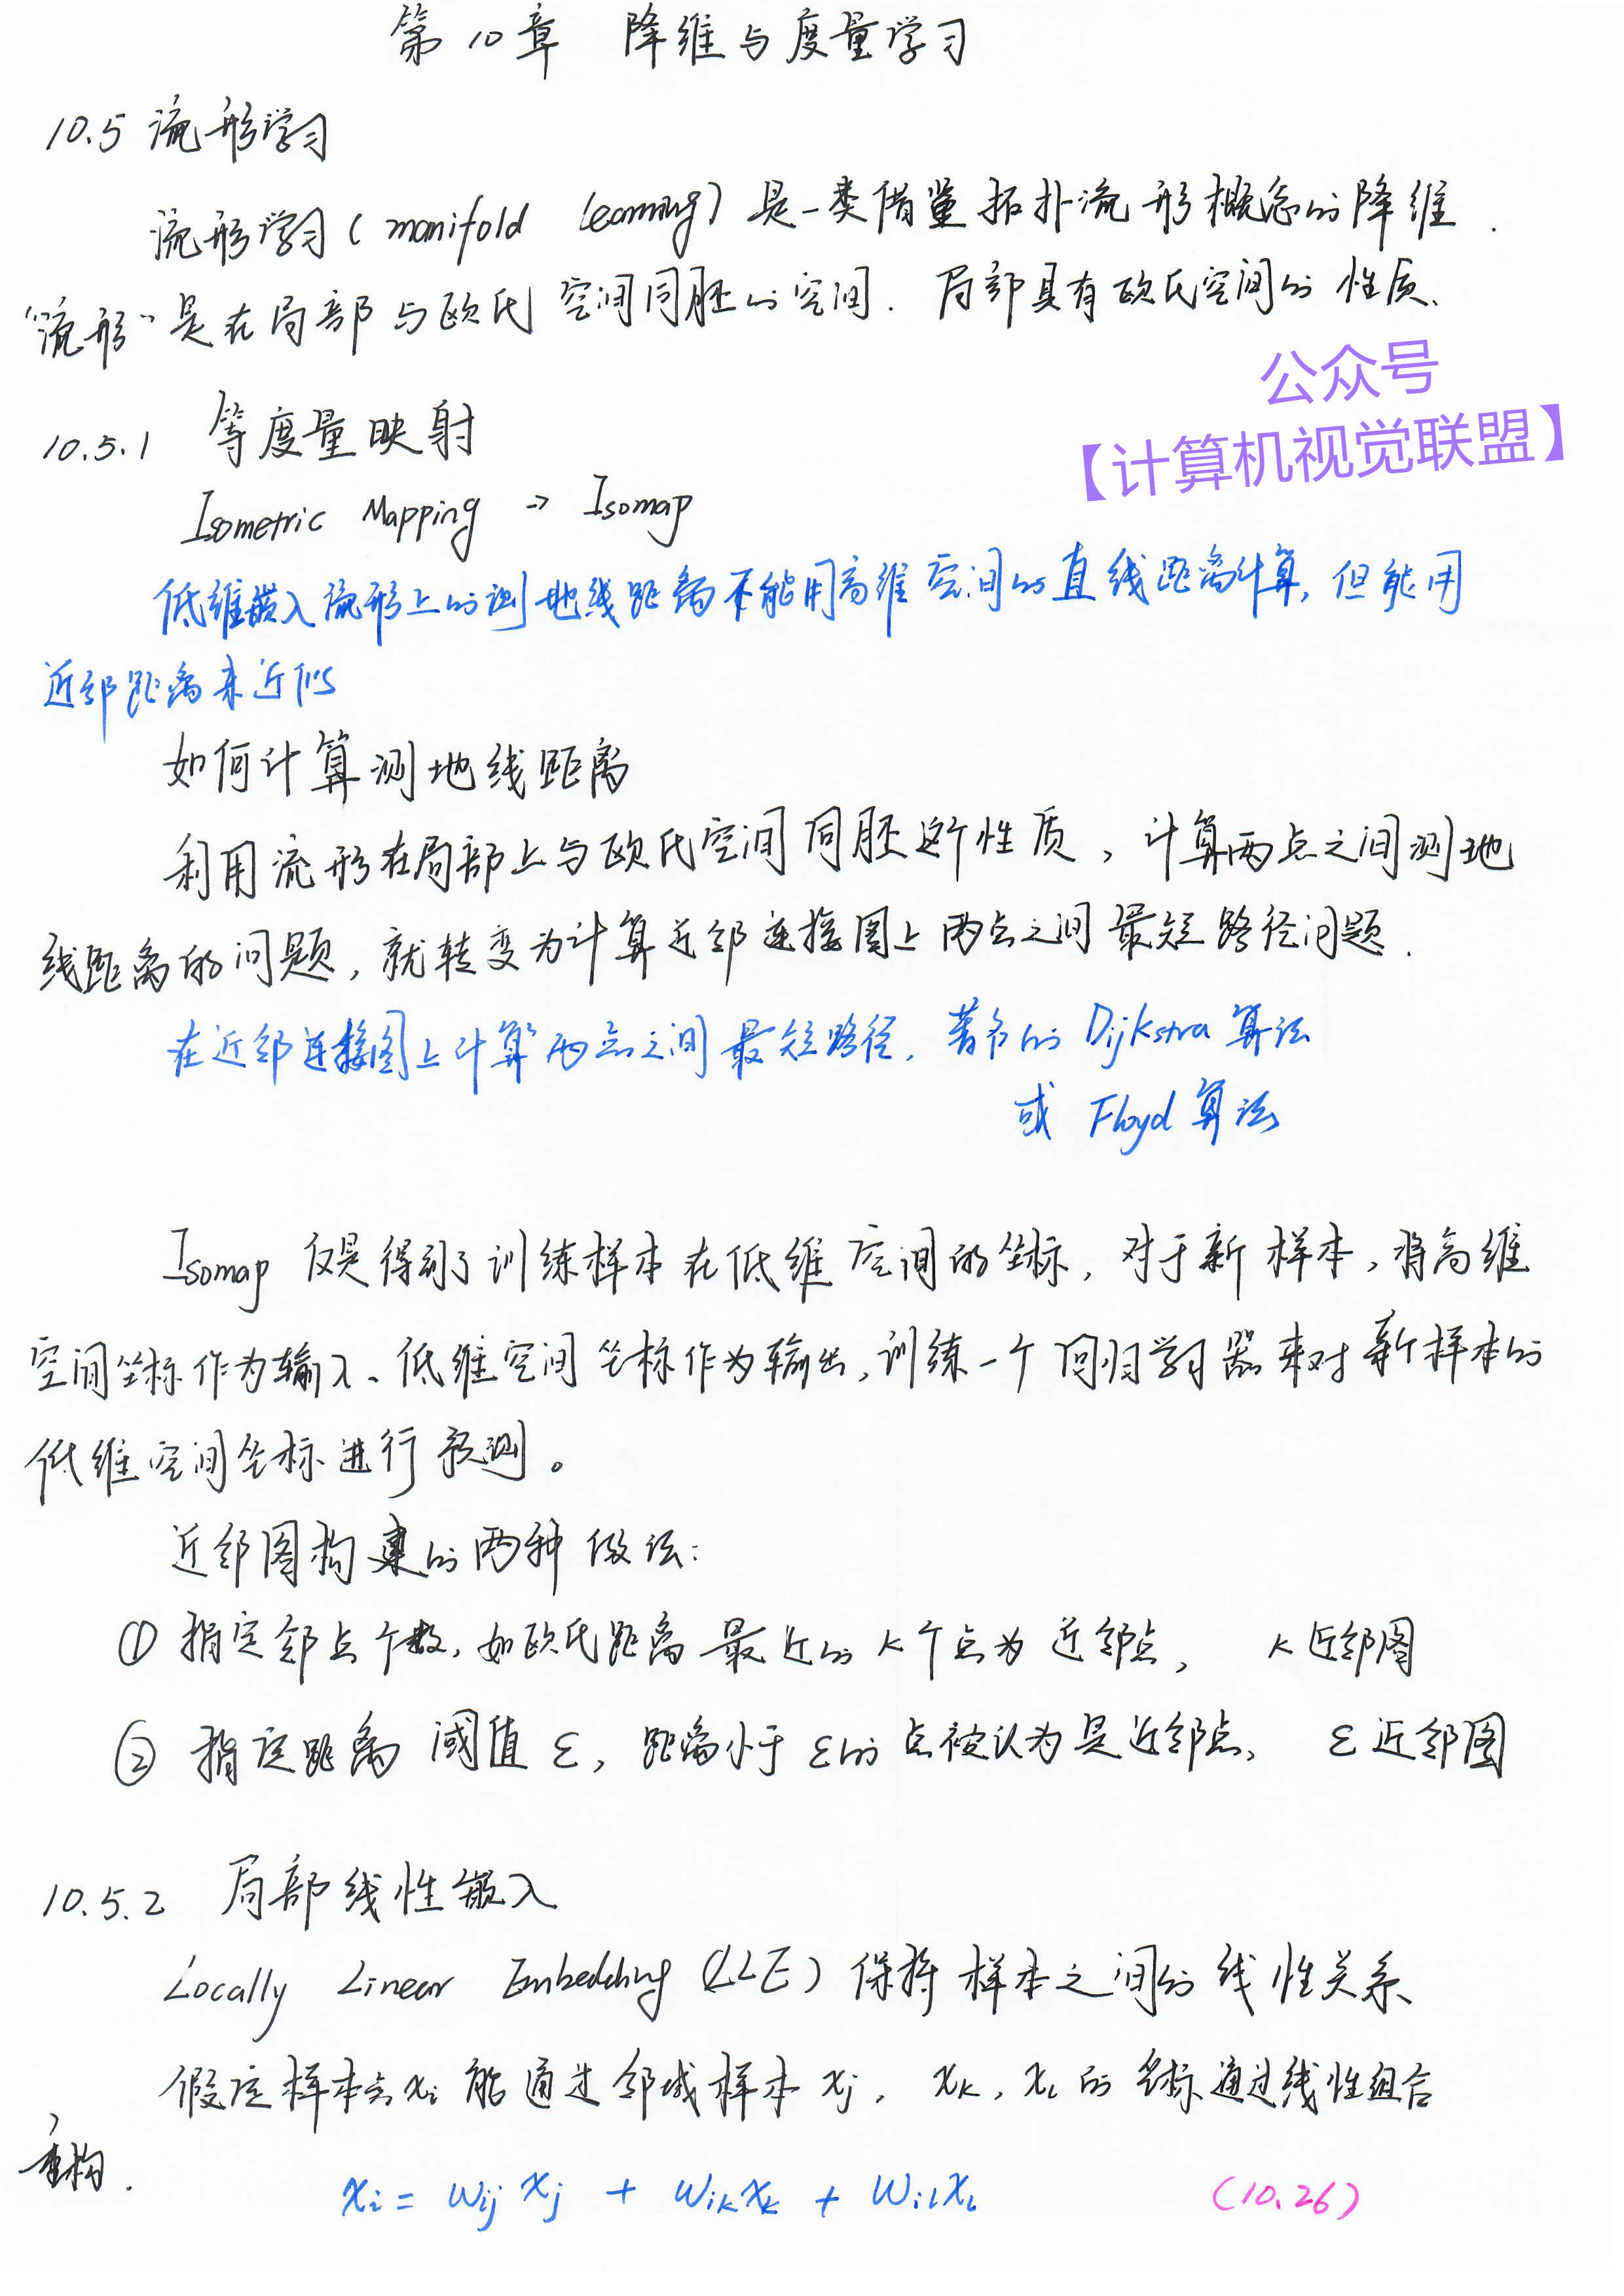 第10章 降维与度量学习
10.5 流形学习
流形学习(manifold learning)是一类借鉴拓扑流形概念的降维.
"流形"是在局部与欧氏空间同胚的空间.局部具有欧氏空间的性质.
公众号
【计算机视觉联盟】
10.5.1 等度量映射
Isometric Mapping → Isomap
低维嵌入流形上的测地线距离不能用高维空间的直线距离计算,但能用
近邻距离来近似
如何计算测地线距离
利用流形在局部上与欧氏空间同胚这个性质,计算两点之间测地
线距离的问题,就转变为计算近邻连接图上两点之间最短路径问题.
在近邻连接图上计算两点之间最短路径,著名的Dijkstra算法
或 Floyd算法
Isomap 仅是得到了训练样本在低维空间的坐标,对于新样本,将高维
空间坐标作为输入、低维空间坐标作为输出,训练一个回归学习器来对新样本的
低维空间坐标进行预测。
近邻图构建的两种做法:
① 指定邻点个数,如欧氏距离最近的k个点为近邻点, k近邻图
② 指定距离阈值ε,距离小于ε的点被认为是近邻点, ε近邻图
10.5.2 局部线性嵌入
Locally Linear Embedding (LLE) 保持样本之间的线性关系
假定样本点xi能通过邻域样本xj,xk,xl的坐标通过线性组合
重构.
xi = wij xj + wik xk + wil xl (10.26)